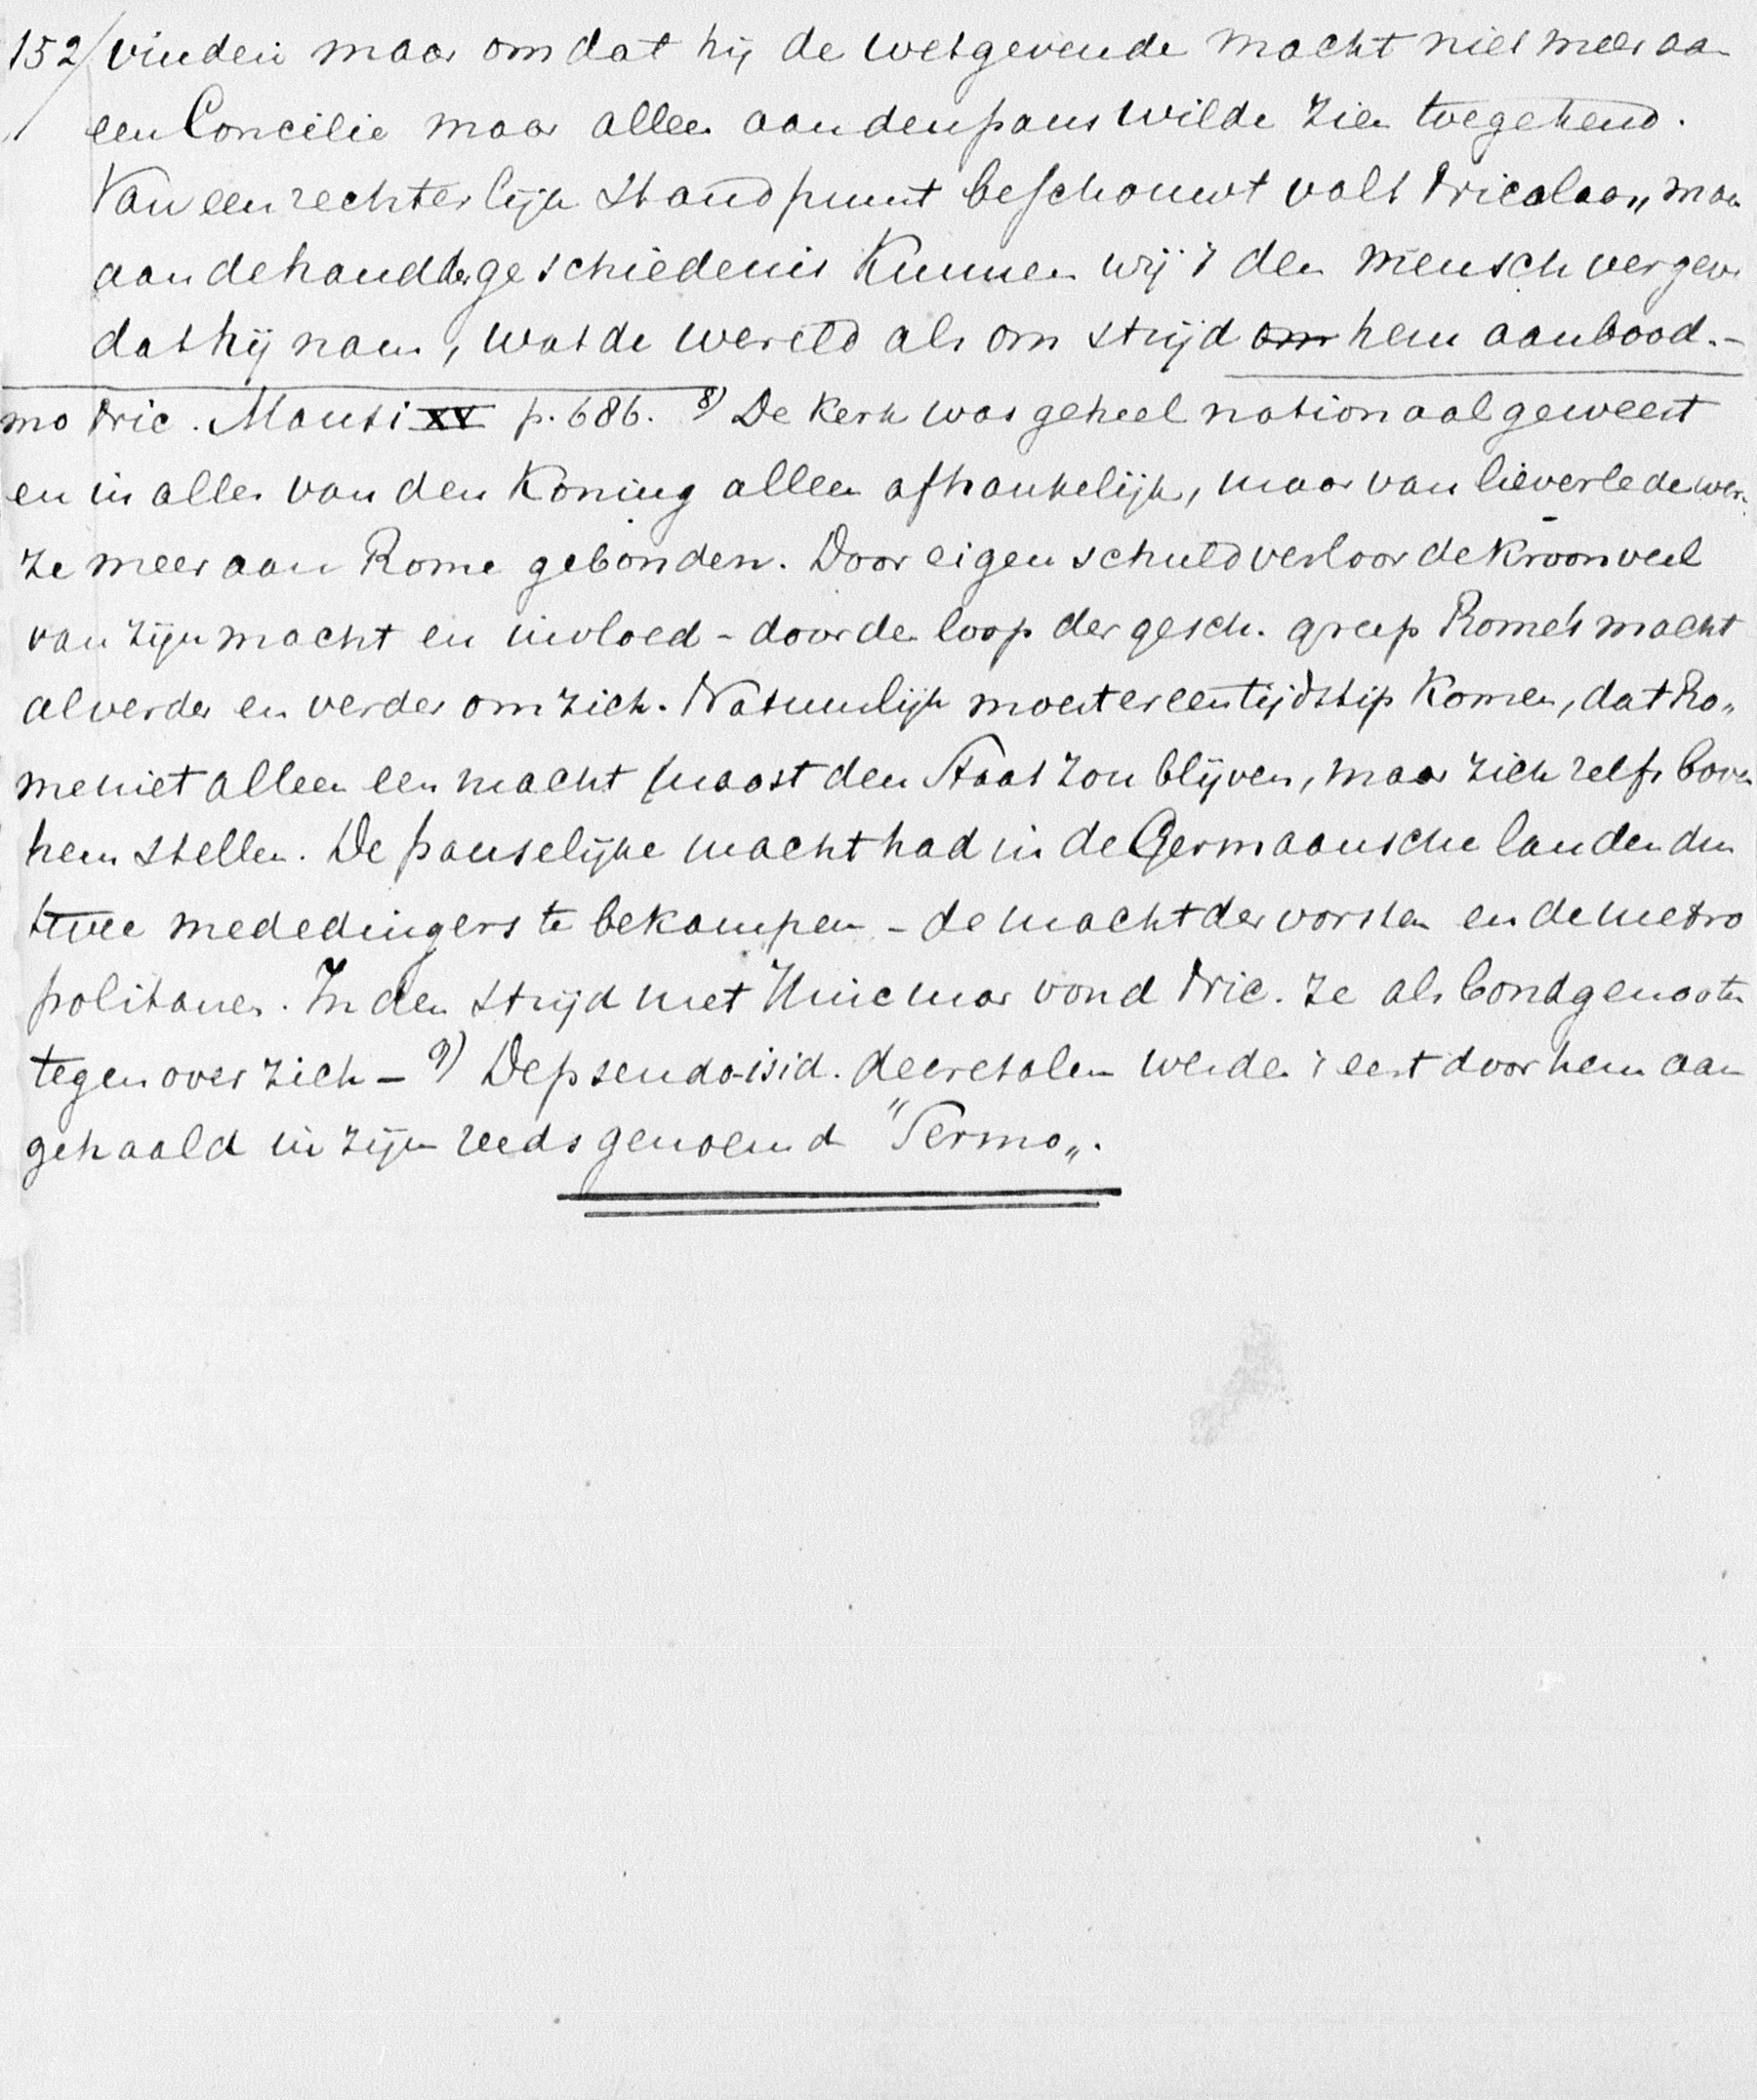 152/ vinden maar omdat hij de wetgevende macht niet meer aan
een Concilie maar alleen aan den paus wilde zien toegekend.
Van een rechterlijk standpunt beschouwt valt Nicolaas, maar
aan de hand der geschiedenis kunnen wij 't den mensch vergeven
dat hij nam, wat de wereld als om strijd om hem aanbood.-
mo Nic. Mansi XV p. 686. 8) De kerk was geheel nationaal geweest
en in alles van den Koning alleen afhankelijk, maar van lieverlede werd
ze meer aan Rome gebonden. Door eigen schuld verloor de Kroon veel
van zijn macht en invloed - door de loop der gesch. greep Rome's macht
al verder en verder om zich. Natuurlijk moest er een tijdstip komen, dat Ro„
me niet alleen een macht naast den Staat zou blijven, maar zich zelfs boven
hem stellen. De pauselijke macht had in de Germaansche landen dus
twee mededingers te bekampen - de macht der vorsten en de metro
politanen. In den strijd met Hincmar vond Nic. ze als bondgenooten
tegenover zich - 9) De pseudo-isid. decretalen werden 't eerst door hem aan
gehaald in zijn reeds genoemd "Sermo„.